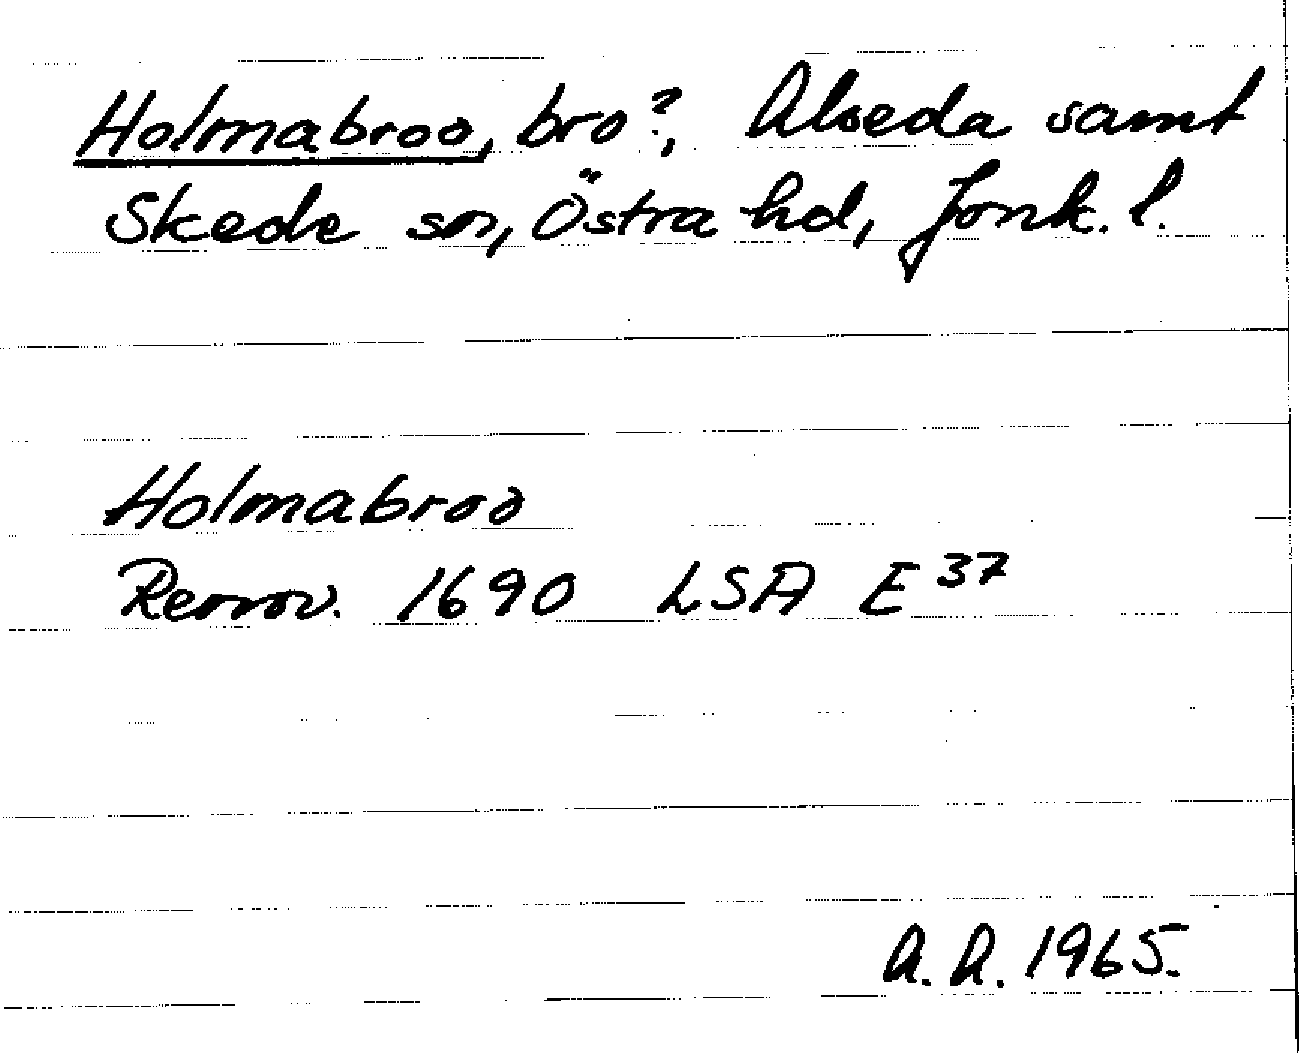 Holmabroo, bro?, Alseda samt
Skede sn, Östra hd, Jönk. l.
Holmabroo
Rennov. 1690 LSA E 37
A. A. 1965.